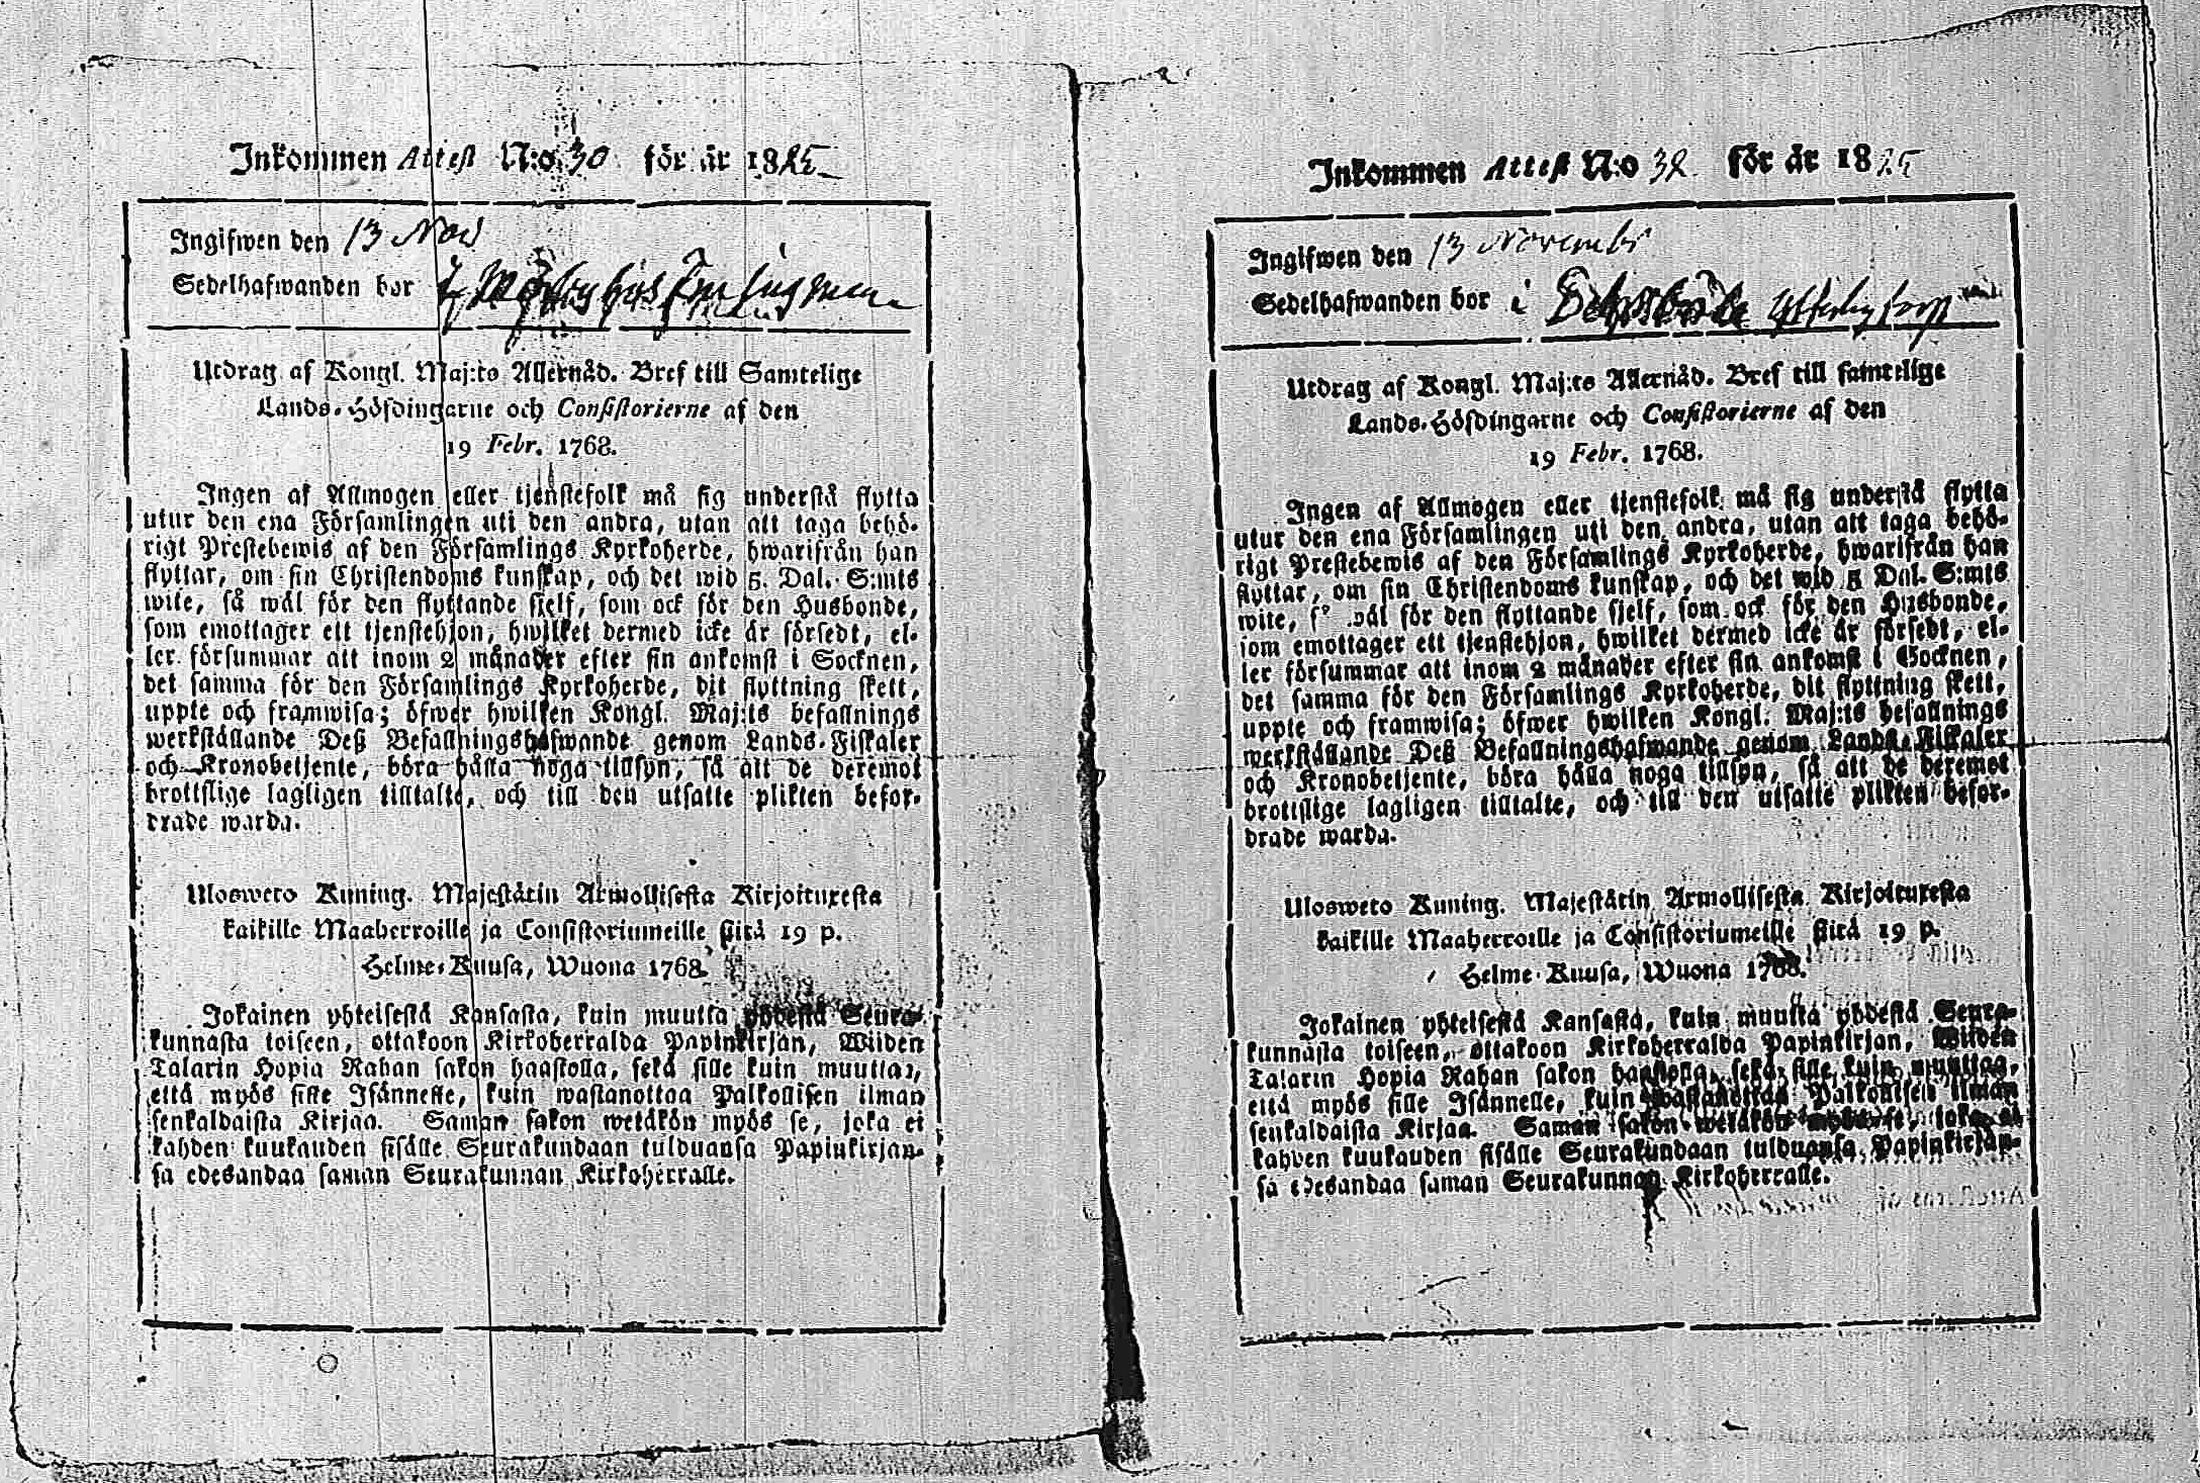 Inkommen Attest N:o 30 för år 1825
Ingifwen den 13 Nov
Sedelhafwanden bor
Utdrag af Kongl. Maj:ts Allernåd. Bref till Samtelige
Lands-Höfdingarne och Consistorierne af den
19 Febr. 1768.
Ingen af Allmogen eller tjenstefolk må sig understå flytta
utur den ena Församlingen uti den andra, utan att taga behö-
rigt Prestebewis af den Församlings Kyrkoherde, hwarifrån han
flyttar, om sin Christendoms kunskap, och det wid 5. Dal. S:mts
wite, så wäl för den flyttande sjelf, som ock för den Husbonde,
som emottager ett tjenstehjon, hwilket dermed icke är försedt, el-
ler försummar att inom 2 månader efter sin ankomst i Socknen,
det samma för den Församlings Kyrkoherde, dit flyttning skett,
uppte och framwisa; öfwer hwilken Kongl. Maj:ts befallnings
werkställande Deß Befallningshafwande genom Lands-Fiskaler
och Kronobetjente, böra hålla noga tillsyn, så att de deremot
brottslige lagligen tilltalte, och till den utsatte plikten befor-
drade warda.
Ulosweto Kuning. Majestätin Armollisesta Kirjoituxesta
kaikille Maaherroille ja Consistoriumeille siitä 19 p.
Helme-Kuusa, Wuona 1768.
Jokainen yhteisestä Kansasta, kuin muutta yhdestä Seura-
kunnasta toiseen, ottakoon Kirkoherralda Papinkirjan, Wiiden
Talarin Hopia Rahan sakon haastolla, sekä sille kuin muuttaa,
että myös sille Isännelle, kuin wastanottaa Palkollisen ilman
senkaldaista Kirjaa. Saman sakon wetäkön myös se, joka ei
kahden kuukauden sisälle Seurakundaan tulduansa Papinkirjan-
sa edesandaa saman Seurakunnan Kirkoherralle.
Inkommen Attest N:o 32 för år 1825
Ingifwen den 13 Novembr
Sedelhafwanden bor i
Utdrag af Kongl. Maj:ts Allernåd. Bref till samtelige
Lands-Höfdingarne och Consistorierne af den
19 Febr. 1768.
Ingen af Allmogen eller tjenstefolk må sig understå flytta
utur den ena Församlingen uti den andra, utan att taga behö-
rigt Prestebewis af den Församlings Kyrkoherde, hwarifrån han
flyttar, om sin Christendoms kunskap, och det wid 5 Dal. S:mts
wite, wäl för den flyttande sjelf, som ock för den Husbonde,
som emottager ett tjenstehjon, hwilket dermed icke är försedt, el-
ler försummar att inom 2 månader efter sin ankomst i Socknen,
det samma för den Församlings Kyrkoherde, dit flyttning skett,
uppte och framwisa; öfwer hwilken Kongl. Maj:ts befallnings
werkställande Deß Befallningshafwande genom Lands-Fiskaler
och Kronobetjente, böra hålla noga tillsyn, så att de deremot
brottslige lagligen tilltalte, och till den utsatte plikten befor-
drade warda.
Ulosweto Kuning. Majestätin Armollisesta Kirjoituxesta
kaikille Maaherroille ja Consistoriumeille siitä 19 p.
Helme-Kuusa, Wuona 1768.
Jokainen yhteisestä Kansasta, kuin muutta yhdestä Seura-
kunnasta toiseen, ottakoon Kirkoherralda Papinkirjan, Wiiden
Talarin Hopia Rahan sakon haastolla, sekä sille kuin muuttaa,
että myös sille Isännelle, kuin wastanottaa Palkollisen ilman
senkaldaista Kirjaa. Saman sakon wetäkön myös se, joka ei
kahden kuukauden sisälle Seurakundaan tulduansa Papinkirjan-
sa edesandaa saman Seurakunnan Kirkoherralle.